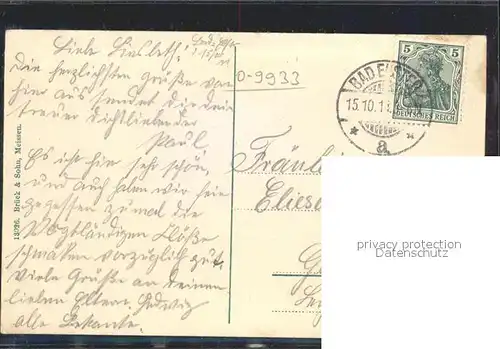 Liebe Liesleth!
Die herzlichsten Grüße von
hier aus sendet dir dein
treuer dichliebender
Paul.
Es ist hier sehr schön,
und auch haben wir fein
gegessen zumal die
Vogtländigen Klöße
schmaken vorzüglich gut.
Viele Grüße an deinen
lieben Eltern, Hedwig
alle Bekante.
D-9933
13926. Brück & Sohn, Meissen.
5 5
DEUTSCHES REICH
BAD ELSTER
15.10.1
* a *
Fräule
Eliese
privacy protection
Datenschutz